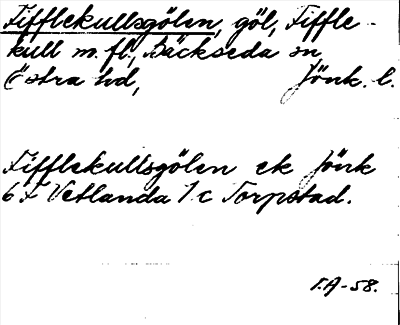 Fifflekullsgölen, göl, Fiffle-
kull m. fl., Bäckseda sn
Östra hd, Jönk. l.
Fifflekullsgölen ek Jönk
6 F Vetlanda 1 c Torpstad.
F.A-58.